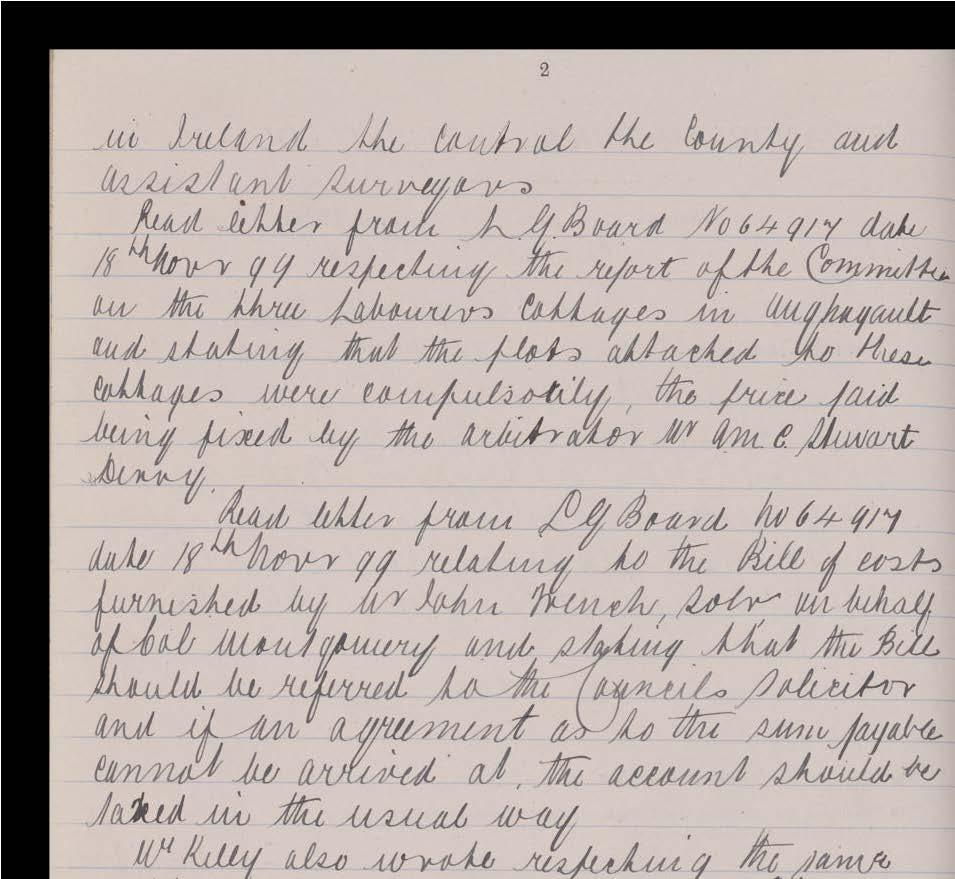 2
in Ireland the control the County and
assistant surveyors
Read letter from L.G. Board No 64917 date
18th Novr 99 respecting the report of the Committee
on the three Labourers Cottages in Aughagault
and stating that the plots attached to these
cottages were compulsotily, the price paid
being fixed by the arbitrator Mr Wm. C. Stewart
Derry.
Read letter from L G Board No 64917
date 18th Novr 99 relating to the Bill of costs
furnished by Mr John French, Solr on behalf
of Col Montgomery and stating that the Bill
should be referred to the Councils Solicitor
and if an agreement as to the sum payable
cannot be arrived at, the account should be
taxed in the usual way
Mr Kelly also wrote respecting the same